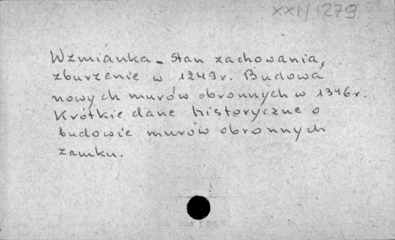 XXI/1279
Wzmianka - stan zachowania,
zburzenie w 1249 r. Budowa
nowych murów obronnych w 1346 r.
Krótkie dane historyczne o
budowie murów obronnych
zamku.